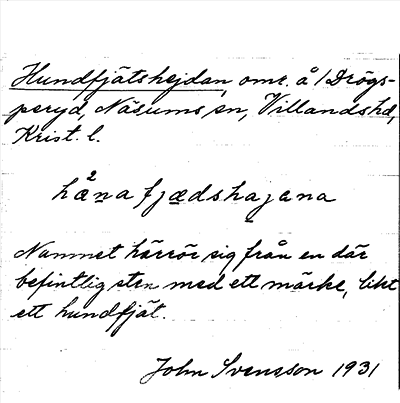 Hundfjätshejdan, omr. å /Drögs-
peryd, Näsums sn, Villands hd,
Krist. l.
hå2nafjædshajana
Namnet härrör sig från en där
befintlig sten med ett märke, likt
ett hundfjät.
John Svensson 1931